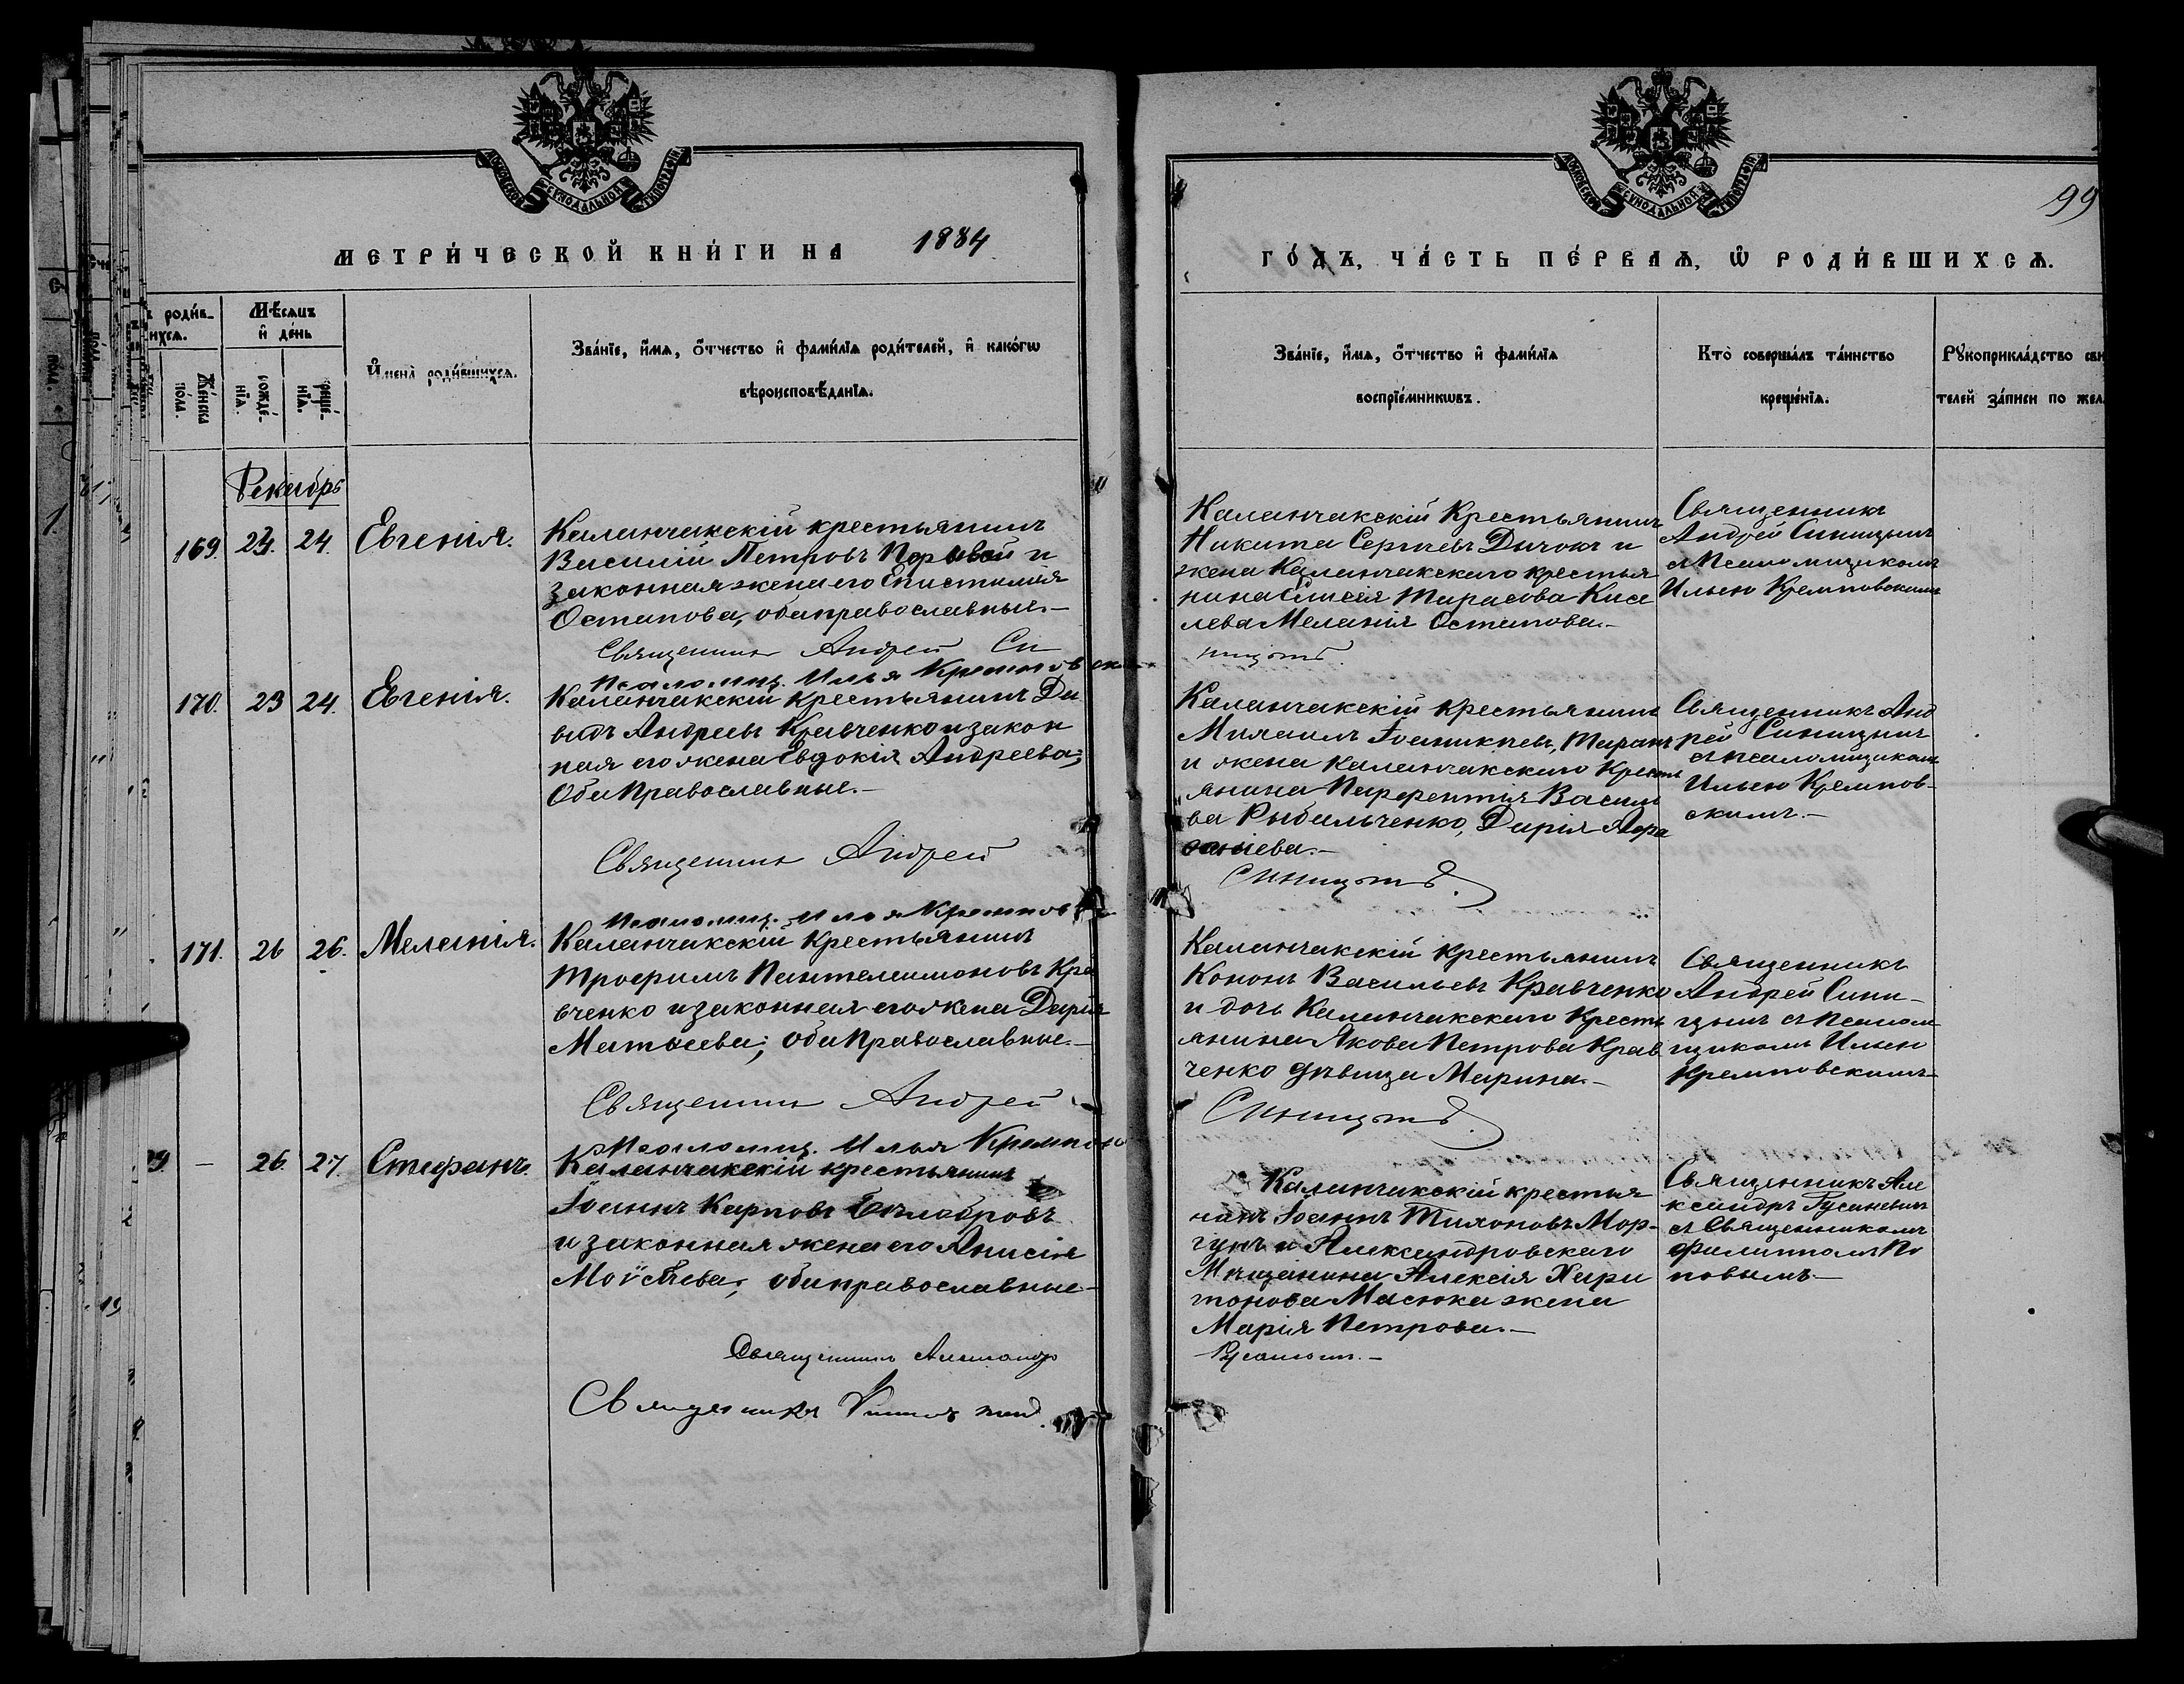 МЕТРИ́ЧЕСКОЙ КНИ́ГИ НА 1884
ГО́ДЪ, ЧА́СТЬ ПЕ́РВАѦ, Ѡ҆ РОДИ́ВШИХСѦ.
99
Мѣ́сѧцъ и҆ де́нь
Же́нска по́ла.
рожде́нїѧ.
креще́нїѧ.
И҆мена̀ роди́вшихсѧ.
Зва́нїе, и҆́мѧ, ѻ҆́тчество и҆ фами́лїѧ роди́телей, и҆ како́гѡ
вѣроисповѣ́данїѧ.
Зва́нїе, и҆́мѧ, ѻ҆́тчество и҆ фами́лїѧ
воспрїе́мникѡвъ.
Кто̀ соверша́лъ та́инство
креще́нїѧ.
Рꙋкоприкла́дство сви
телей за́писи по жел
Декабрь
169. 23. 24. Евгенія.
Каланчакскій крестьянинъ
Василій Петровъ Поровай и
законная жена его Епистимія
Остапова, оба православные.-
Священникъ Андрей Си
Псаломщ. Илья Кремповск
Каланчакскій Крестьянинъ
Никита Сергѣевъ Дычокъ и
жена Каланчакскаго крестья
нина Тарасова Кисе
лева Меланія Остапова.-
ницынъ.
Священникъ
Андрей Синицынъ
съ Псаломщикомъ
Ильею Кремповскимъ
170. 23 24. Евгенія.
Каланчакскій крестьянинъ Да
видъ Андреевъ Кравченко и закон
ная его жена Евдокія Андреева;
Оба Православные.-
Священникъ Андрей
Псаломщ. Илья Кремпов
Каланчакскій Крестьянинъ
Михаилъ Іоанникіевъ, Таранъ
и жена каланчакскаго Кресть
янина Парфентія Василь
ва Рыбальченко, Дарія Афа
насіева.-
Синицынъ.
Священникъ Анд
рей Синицынъ
съ псаломщикомъ
Ильею Кремпов-
скимъ.-
171. 26 26. Меланія.
Каланчакскій Крестьянинъ
Трофимъ Пантелеимоновъ Кра
вченко и законная его жена Дарія
Матѳеева; оба Православные.-
Священникъ Андрей
Псаломщ. Илья Кремпов
Каланчакскій крестьянинъ
Кононъ Васильевъ Кравченко
и дочь Каланчакскаго Кресть
янина Якова Петрова Крав
ченко дѣвица Марина.-
Синицынъ.
Священникъ
Андрей Сини-
цынъ съ Псалом
щикомъ Ильею
Кремповскимъ-
- 26. 27. Стефанъ.
Каланчакскій крестьянинъ
Іоаннъ Карповъ Бѣлобровъ
и законная жена его Анисія
Моѵсеева; оба православные-
Священникъ Александръ
Священникъ Филиппъ Поп
Каланчакскій крестья
нинъ Іоаннъ Тихоновъ Мор-
гунъ и Александровскаго
Мѣщанина Алексія Хари
тонова Масюка жена
Марія Петрова.-
Священникъ Але
ксандръ Гусаневичъ
съ Священникомъ
Филиппомъ По
повымъ.-